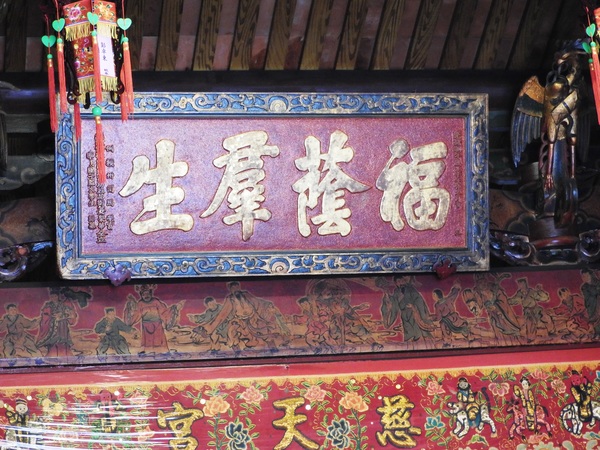 福蔭羣生
慈天宮